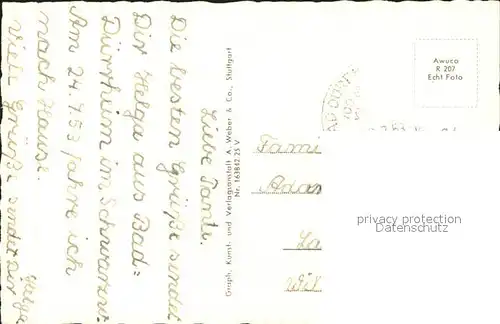 Liebe Tante.
Die besten Grüße sendet
Dir Helga aus Bad=
Dürrheim im Schwarzw.
Am 24.7.53 fahre ich
nach Hause.
Viele Grüße sendet Dir
Helga
Graph. Kunst- und Verlagsanstalt A. Weber & Co., Stuttgart
Nr. 163842.25 V
Awuco
R 207
Echt Foto
Fami
Adam
La
Wil
privacy protection
Datenschutz